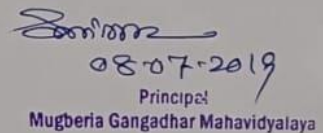 08-07-2019
Principal
Mugberia Gangadhar Mahavidyalaya